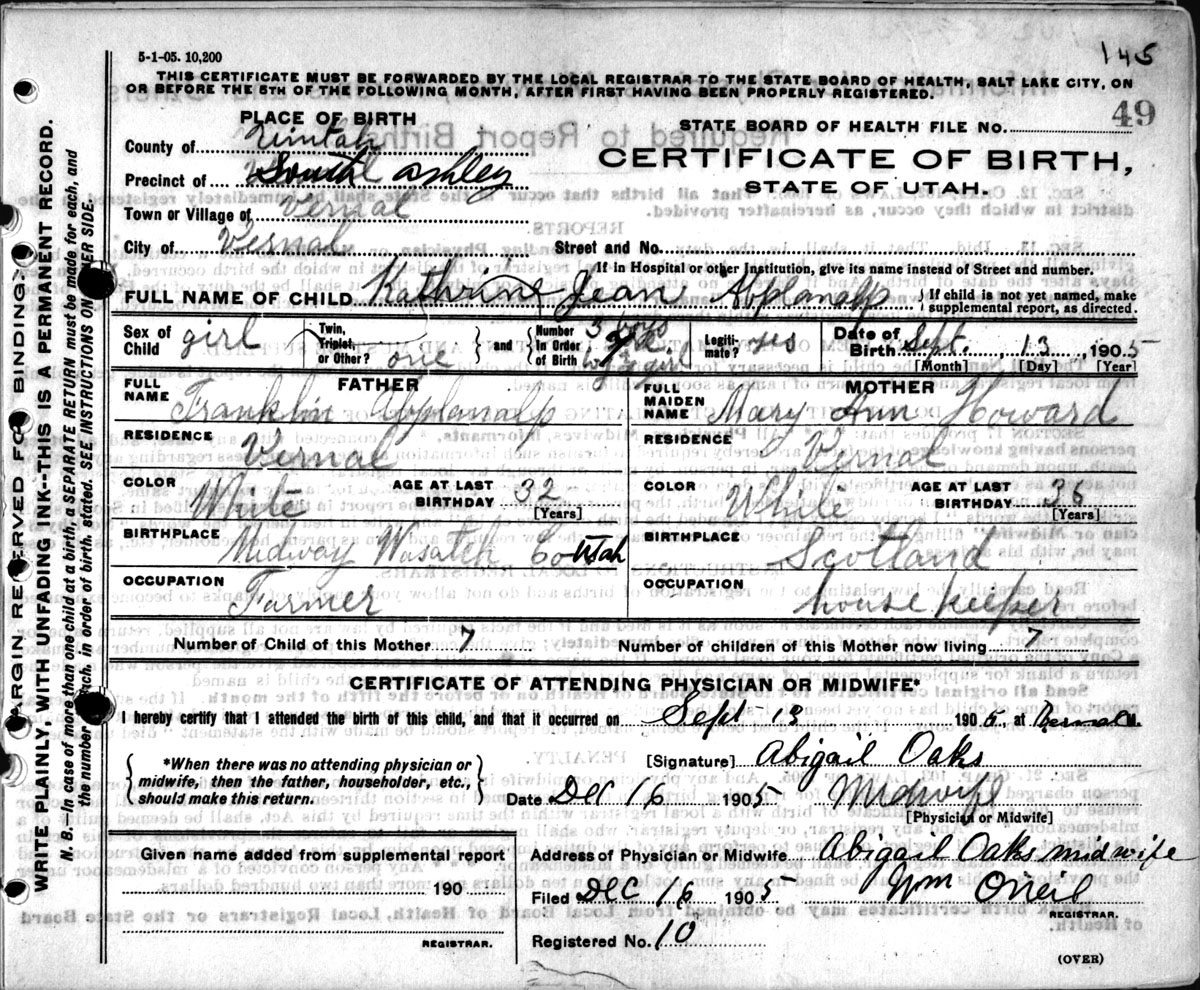 145
5-1-05. 10,200
THIS CERTIFICATE MUST BE FORWARDED BY THE LOCAL REGISTRAR TO THE STATE BOARD OF HEALTH, SALT LAKE CITY, ON
OR BEFORE THE 5TH OF THE FOLLOWING MONTH, AFTER FIRST HAVING BEEN PROPERLY REGISTERED.
49
PLACE OF BIRTH
STATE BOARD OF HEALTH FILE NO.
County of Uintah
CERTIFICATE OF BIRTH,
STATE OF UTAH.
Precinct of South Ashley
Town or Village of Vernal
City of Vernal Street and No.
If in Hospital or other Institution, give its name instead of Street and number.
FULL NAME OF CHILD Kathrine Jean Abplanalp { If child is not yet named, make supplemental report, as directed.
Sex of Child girl Twin, Triplet, or Other? one } and { Number In Order of Birth 3 boys girl Legiti- mate? yes Date of Birth Sept. 13, 1905
[Month] [Day] [Year]
FATHER MOTHER
FULL NAME Franklin Abplanalp FULL MAIDEN NAME Mary Ann Howard
RESIDENCE Vernal RESIDENCE Vernal
COLOR White AGE AT LAST BIRTHDAY 32 [Years] COLOR White AGE AT LAST BIRTHDAY 36 [Years]
BIRTHPLACE Midway Wasatch Co Utah BIRTHPLACE Scotland
OCCUPATION Farmer OCCUPATION house keeper
Number of Child of this Mother 7 Number of children of this Mother now living 7
CERTIFICATE OF ATTENDING PHYSICIAN OR MIDWIFE*
I hereby certify that I attended the birth of this child, and that it occurred on Sept 13 1905, at Vernal
{ *When there was no attending physician or midwife, then the father, householder, etc., should make this return. }
[Signature] Abigail Oaks
Date Dec 16 1905 Midwife
[Physician or Midwife]
Given name added from supplemental report
190
REGISTRAR.
Address of Physician or Midwife Abigail Oaks midwife
Filed Dec 16 1905 Wm O'Neil
REGISTRAR.
Registered No. 10
(OVER)
MARGIN RESERVED FOR BINDING.
WRITE PLAINLY, WITH UNFADING INK--THIS IS A PERMANENT RECORD.
N. B.—In case of more than one child at a birth, a SEPARATE RETURN must be made for each, and
the number of each, in order of birth, stated. SEE INSTRUCTIONS ON OTHER SIDE.